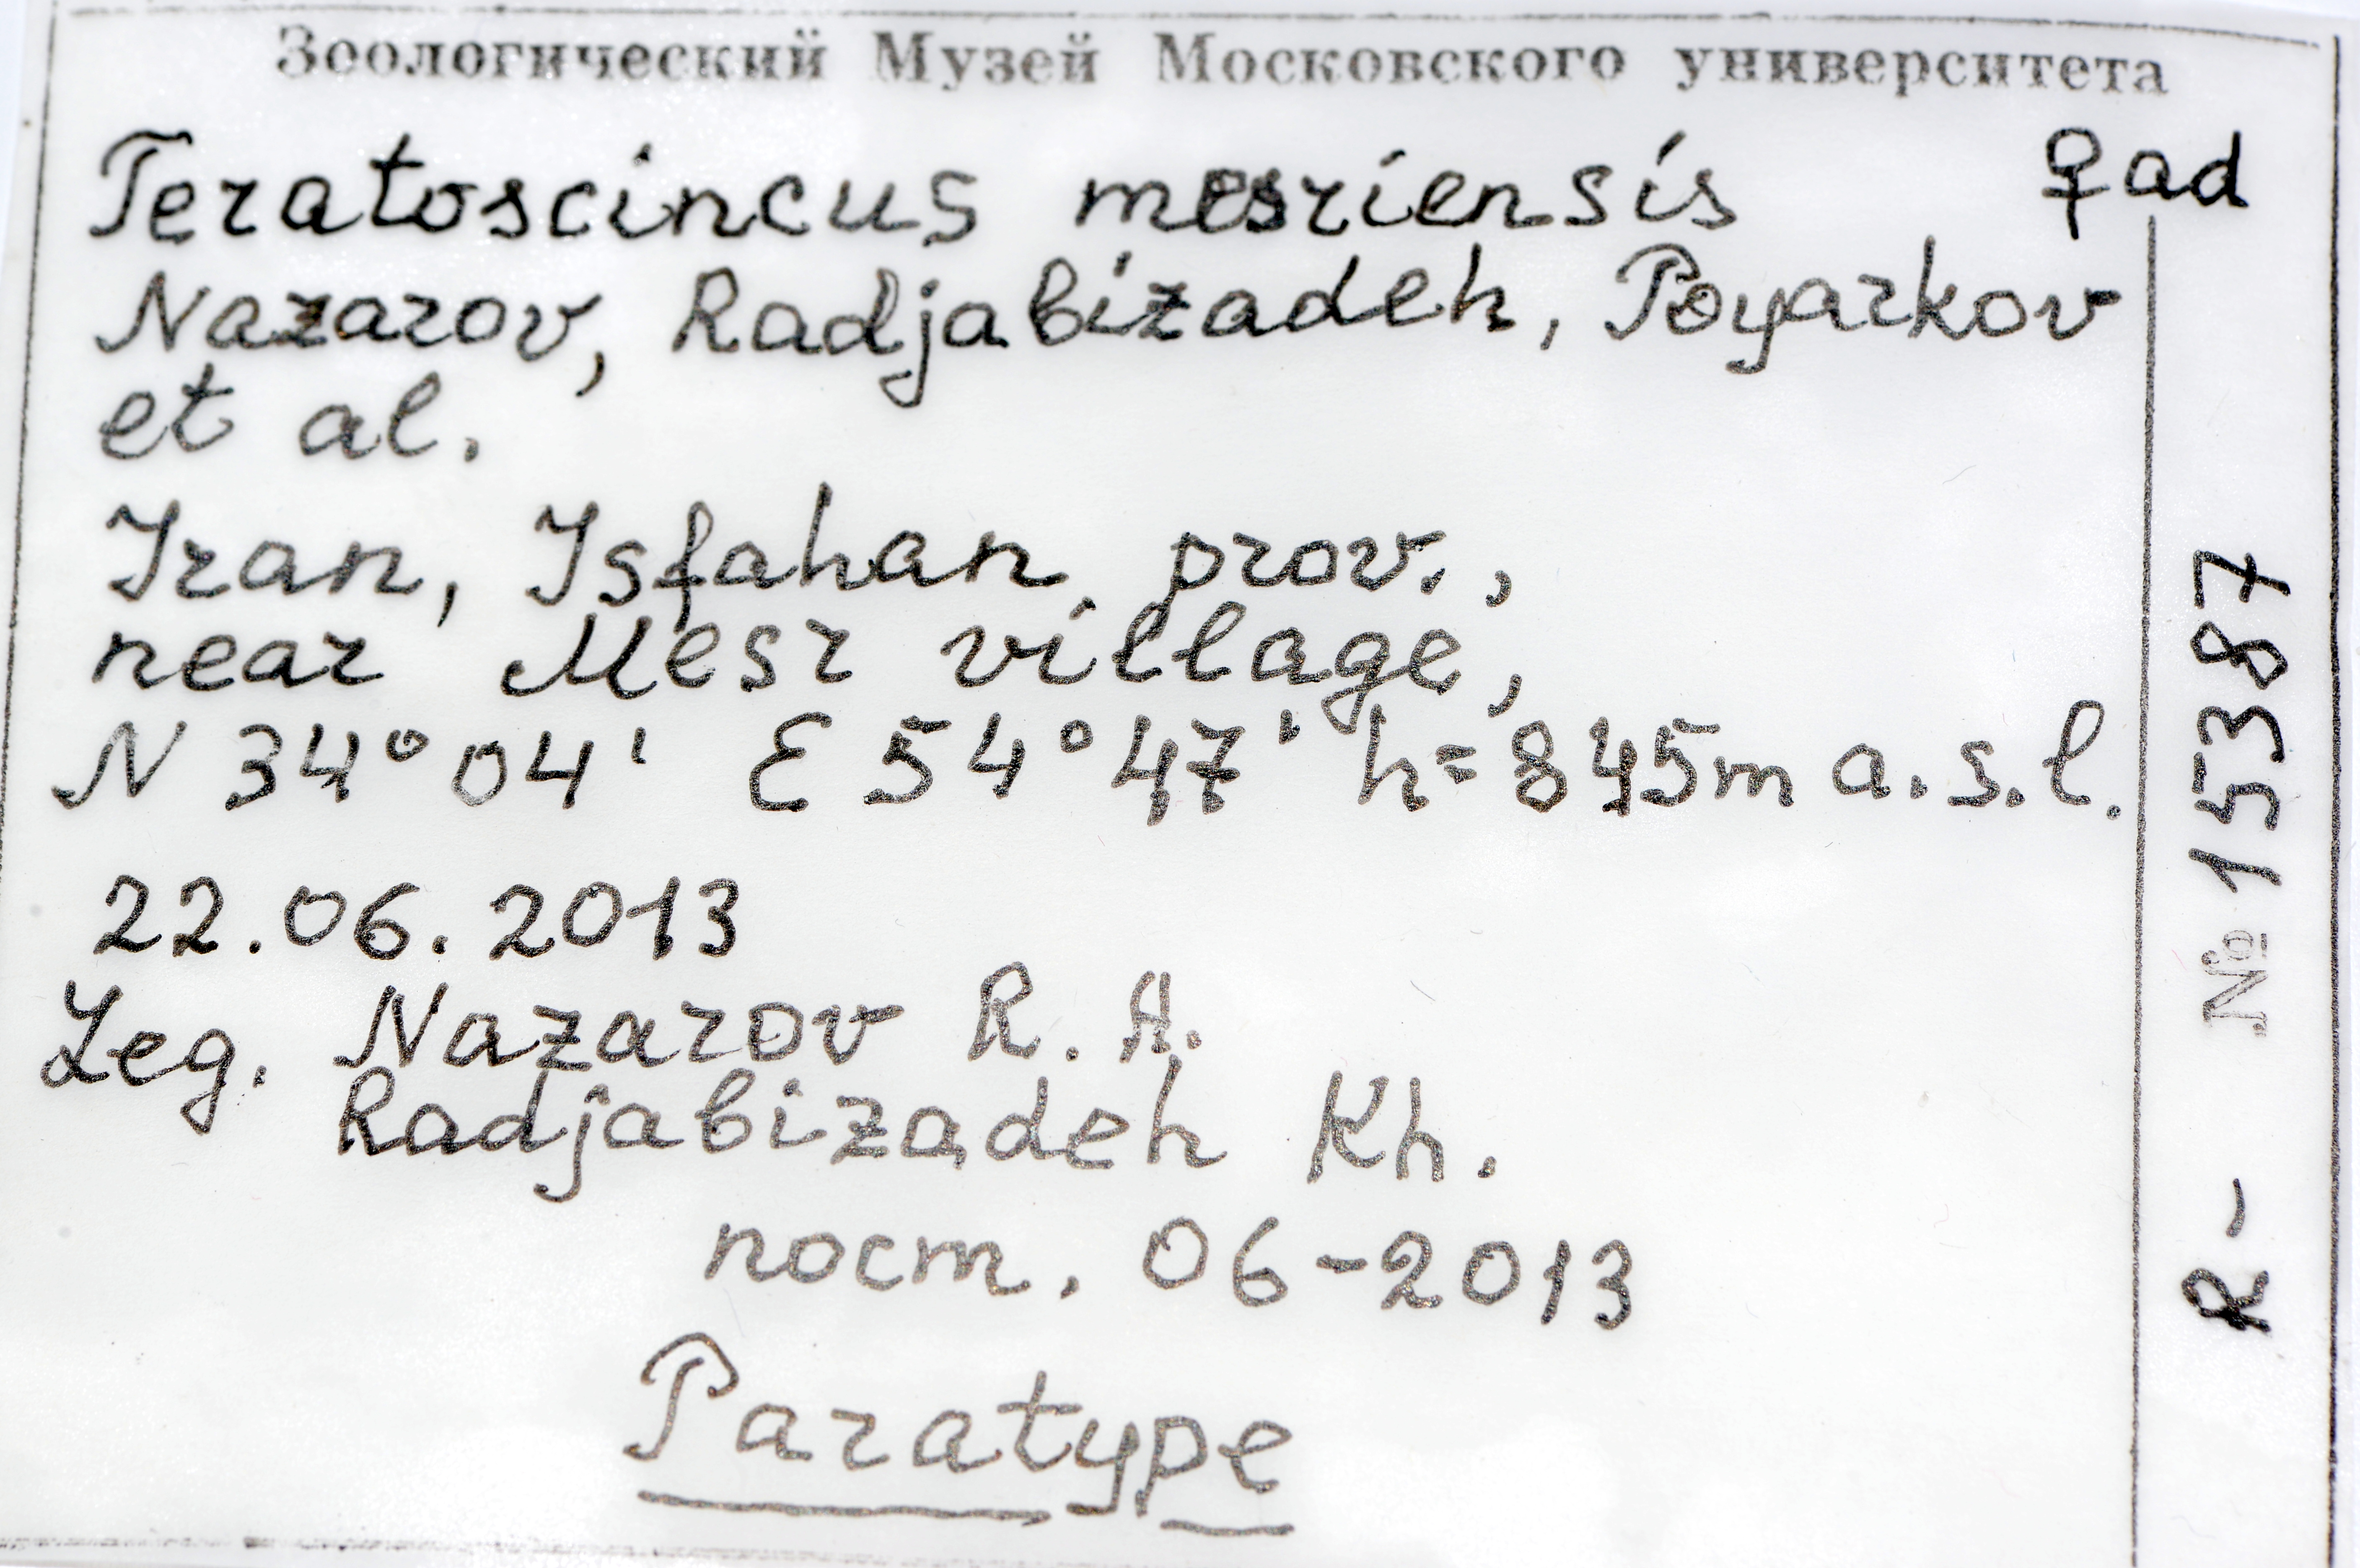 Зоологический Музей Московского университета
Teratoscincus mesriensis ♀ad
Nazarov, Radjabizadeh, Poyarkov
et al.
Iran, Isfahan prov.,
near Mesr village,
N 34°04' E 54°47' h=845m a.s.l.
22.06.2013
Leg. Nazarov R. A.
Radjabizadeh Kh.
пост. 06-2013
Paratype
R- № 15387